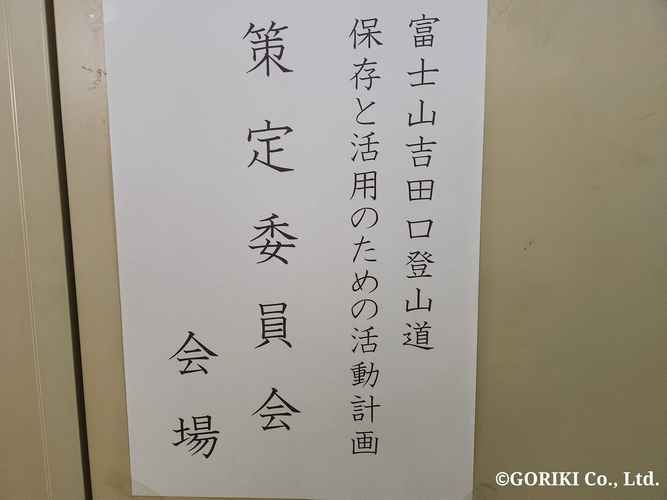 富士山吉田口登山道
保存と活用のための活動計画
策定委員会
会場
©GORIKI Co., Ltd.